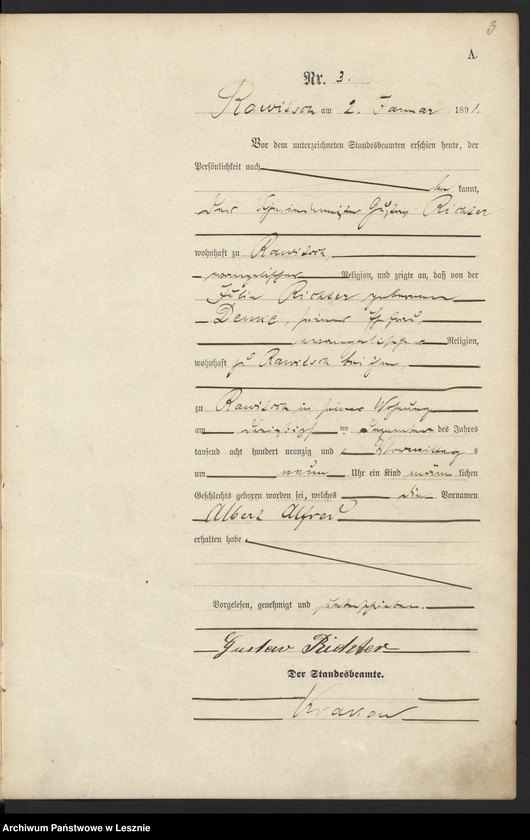 3
A.
Nr. 3.
Rawitsch am 2. Januar 1891.
Vor dem unterzeichneten Standesbeamten erschien heute, der
Persönlichkeit nach
be kannt,
der Gustav Richter
wohnhaft zu Rawitsch,
evangelischer Religion, und zeigte an, daß von der
Julie Richter geborenen
Denke, seiner Ehefrau,
evangelischer Religion,
wohnhaft zu Rawitsch bei ihm,
zu Rawitsch in seiner Wohnung
am dreißigsten Dezember des Jahres
tausend acht hundert neunzig und Vormittag s
um neun Uhr ein Kind männ lichen
Geschlechts geboren worden sei, welches die Vornamen
Albert Alfred
erhalten habe.
Vorgelesen, genehmigt und unterschrieben.
Gustav Richter
Der Standesbeamte.
Archiwum Państwowe w Lesznie